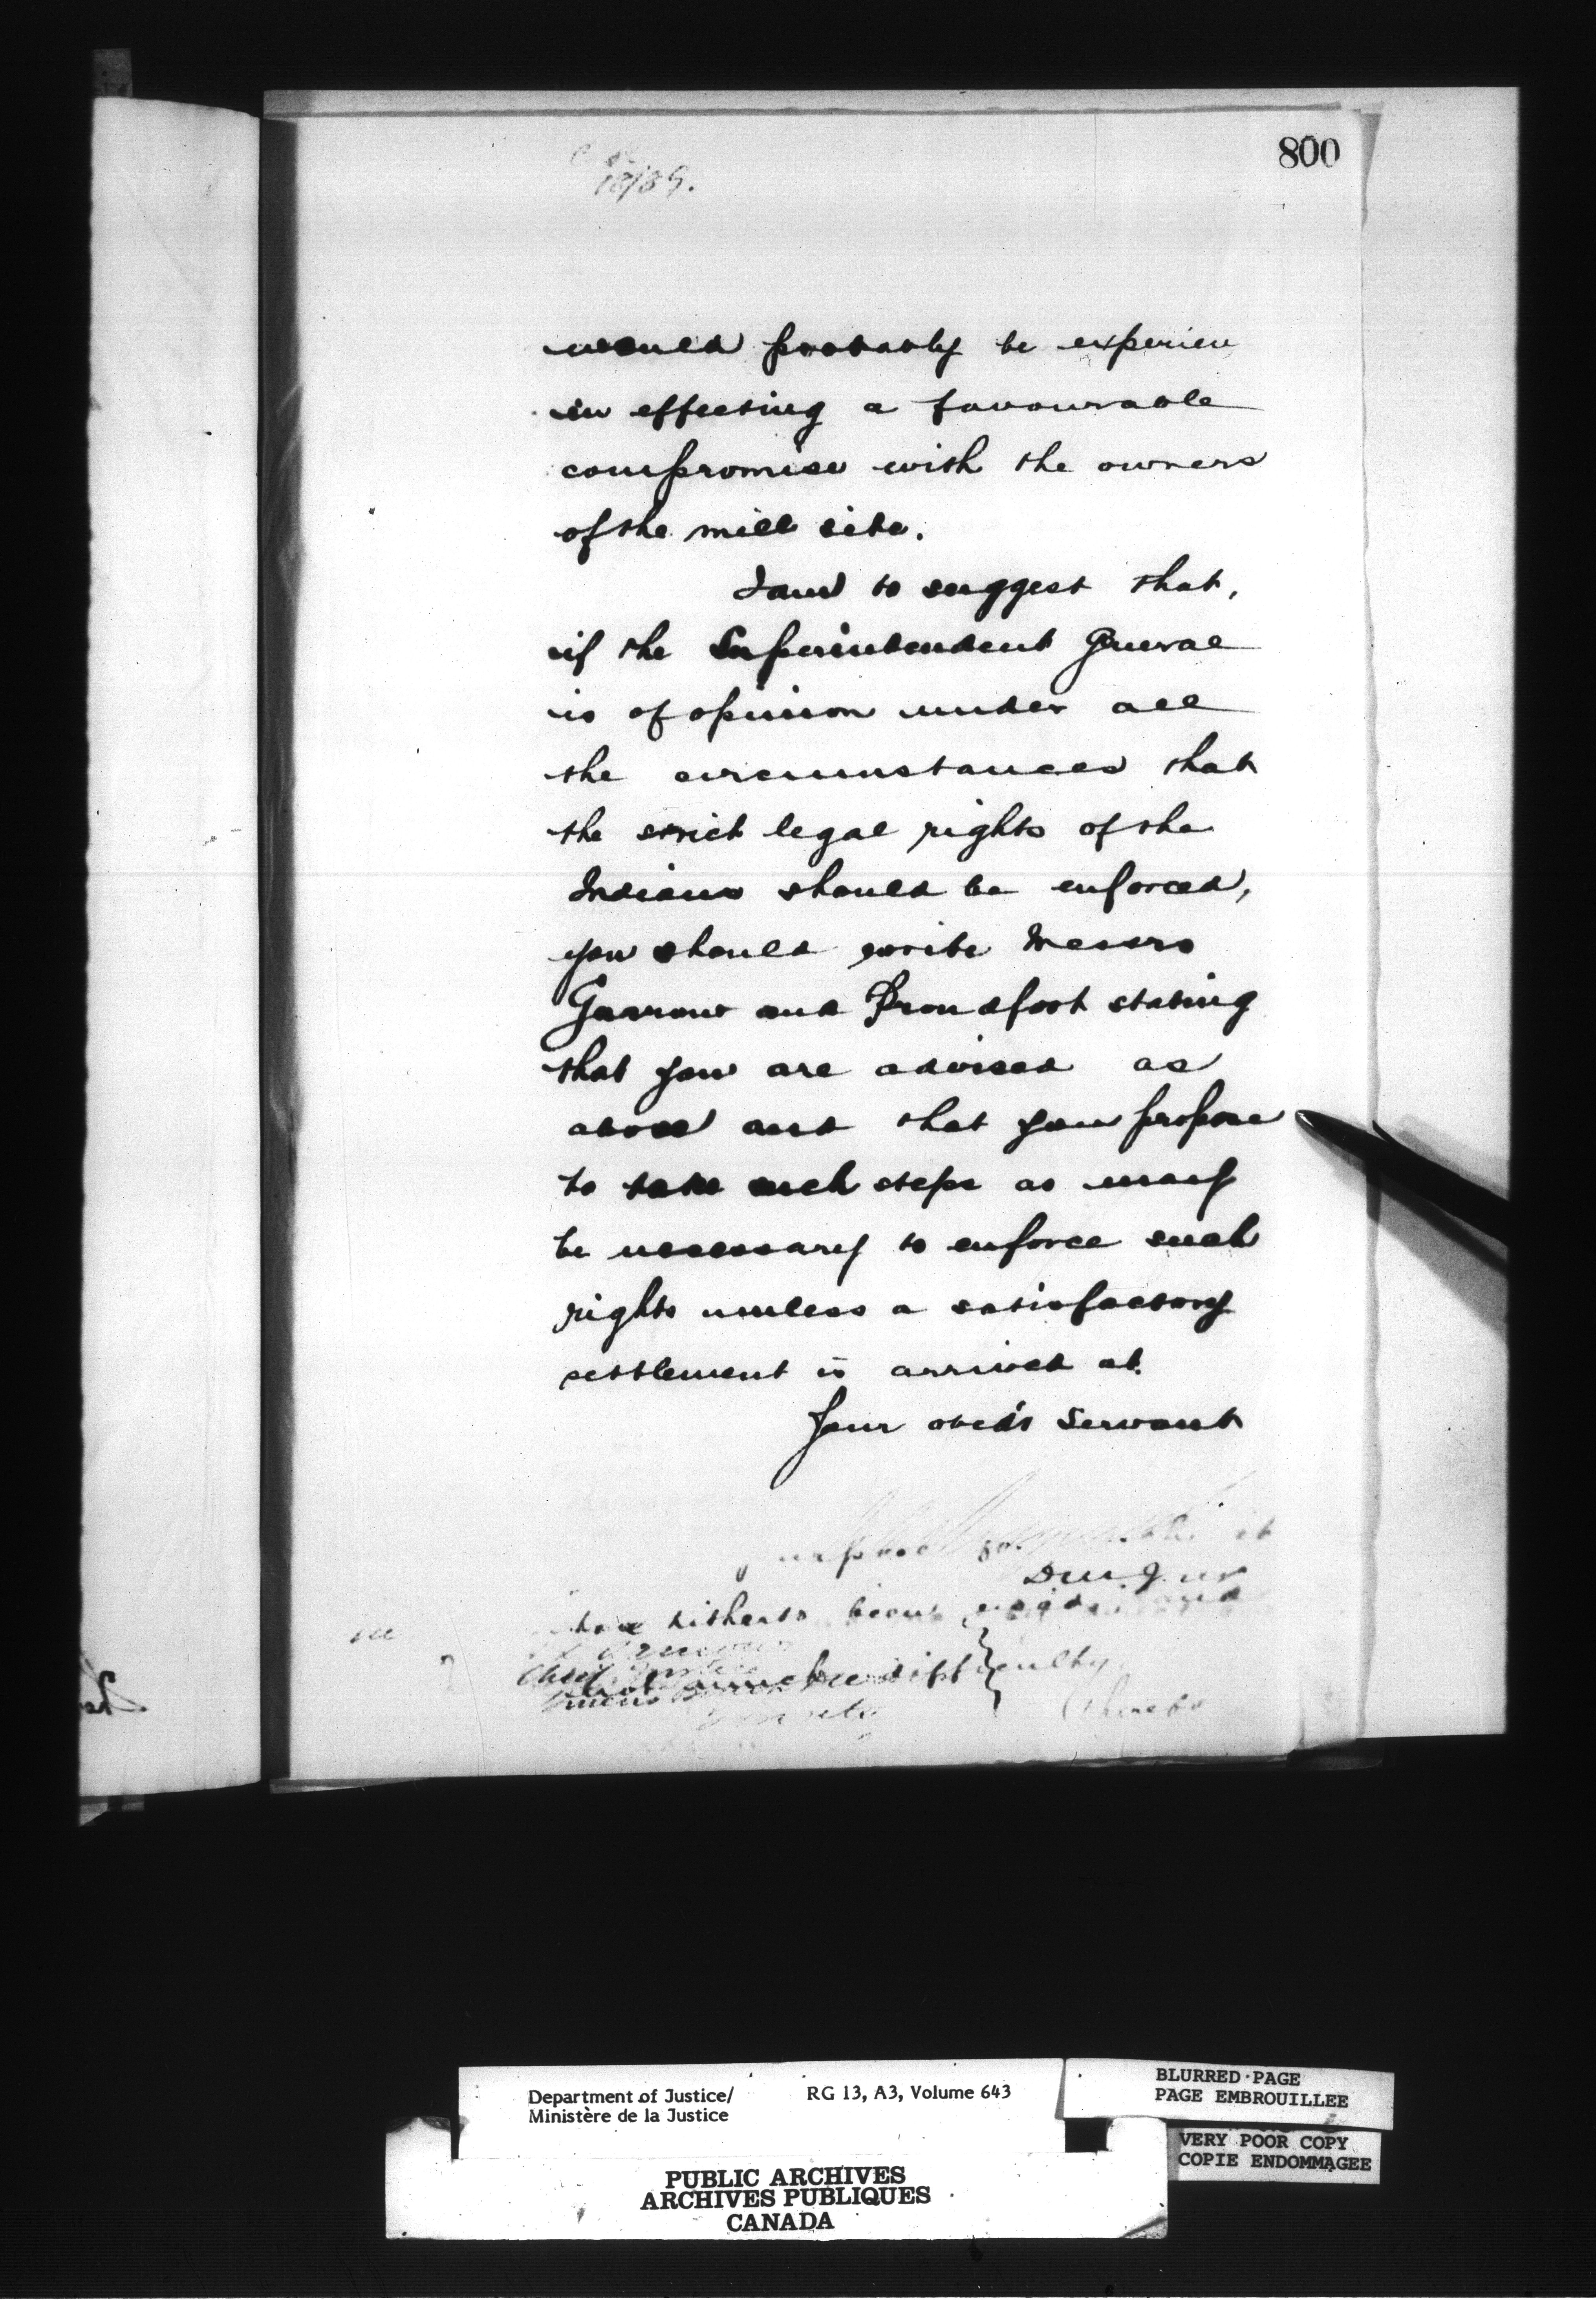 800
18/89.
would probably be experien
in effecting a favourable
compromise with the owners
of the mill site.
I am to suggest that,
if the Superintendent General
is of opinion under all
the circumstances that
the strict legal rights of the
Indians should be enforced,
you should write Messrs
Garrow and Proudfoot stating
that you are advised as
above and that you propose
to take such steps as may
be necessary to enforce such
rights unless a satisfactory
settlement is arrived at.
Your obed't Servant
it
hitherto been and
difficulty
Department of Justice/
Ministère de la Justice
RG 13, A3, Volume 643
BLURRED PAGE
PAGE EMBROUILLEE
VERY POOR COPY
COPIE ENDOMMAGEE
PUBLIC ARCHIVES
ARCHIVES PUBLIQUES
CANADA